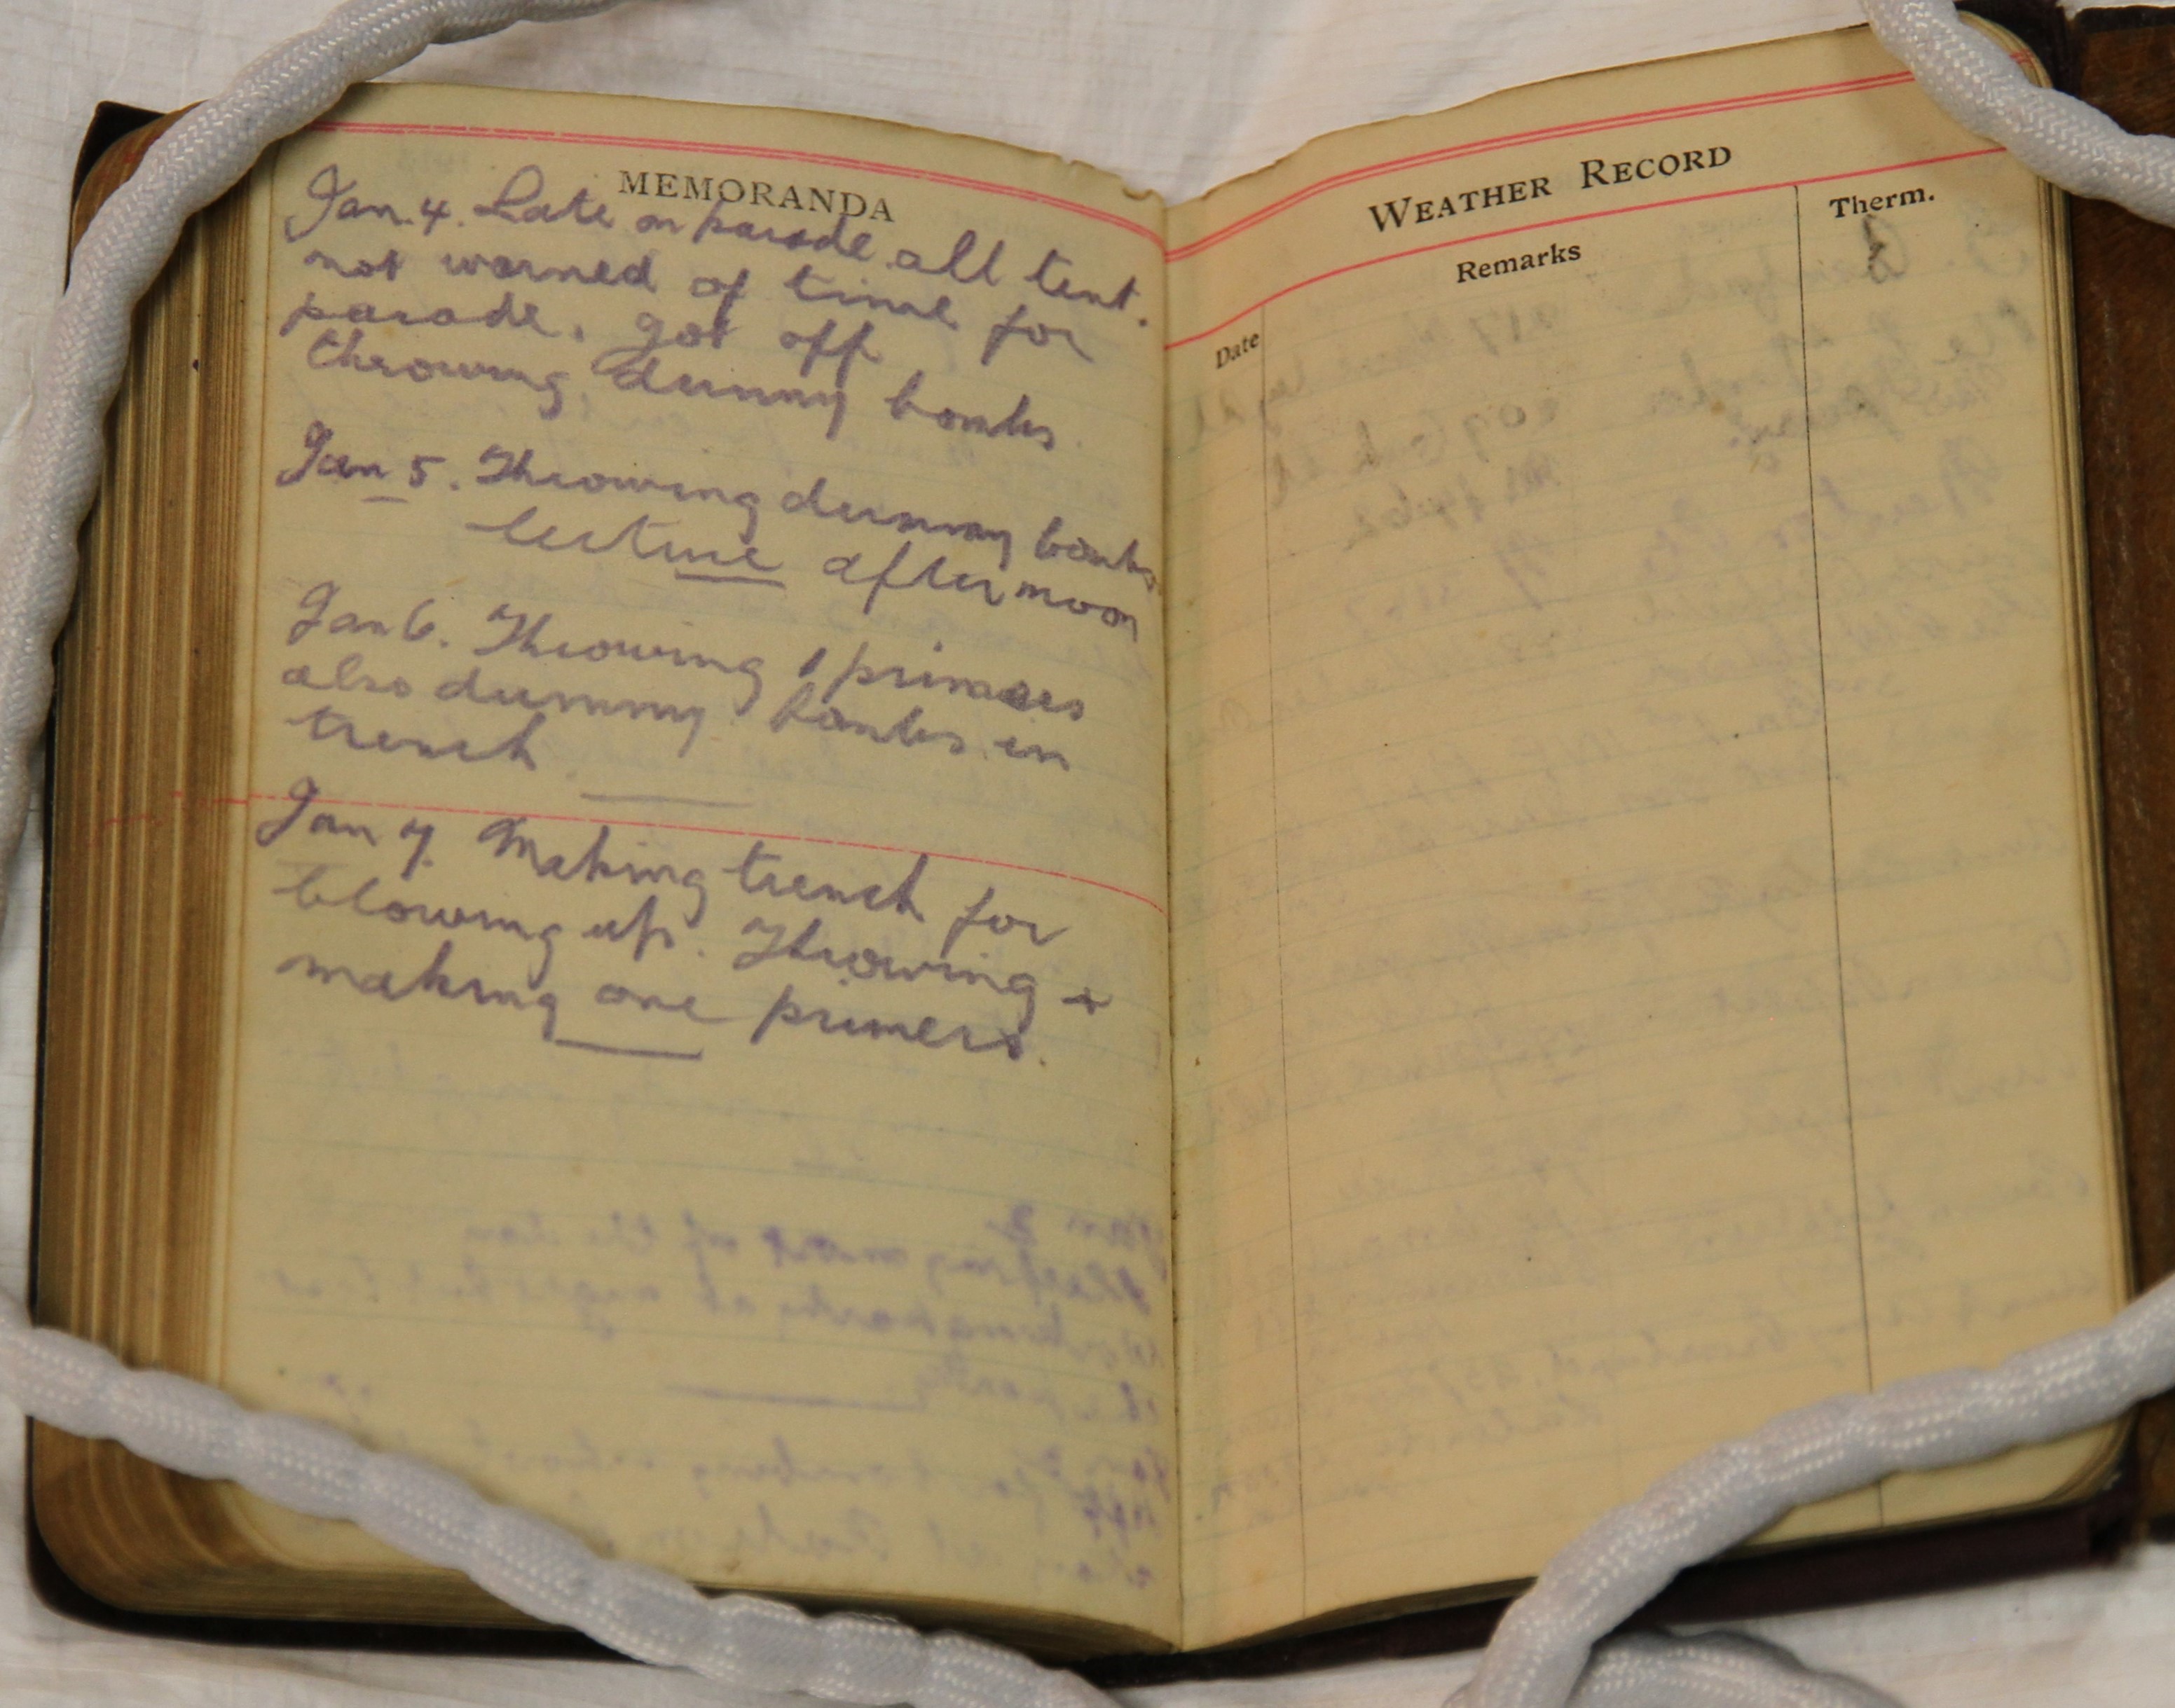 MEMORANDA
Jan. 4. Late on parade all tent.
not warned of time for
parade. got off
throwing dummy bombs.
Jan 5. Throwing dummy bombs
lecture afternoon
Jan 6. Throwing 1 primers
also dummy bombs in
trench
Jan 7. Making trench for
blowing up. Throwing +
making one primers.
WEATHER RECORD
Date
Remarks
Therm.